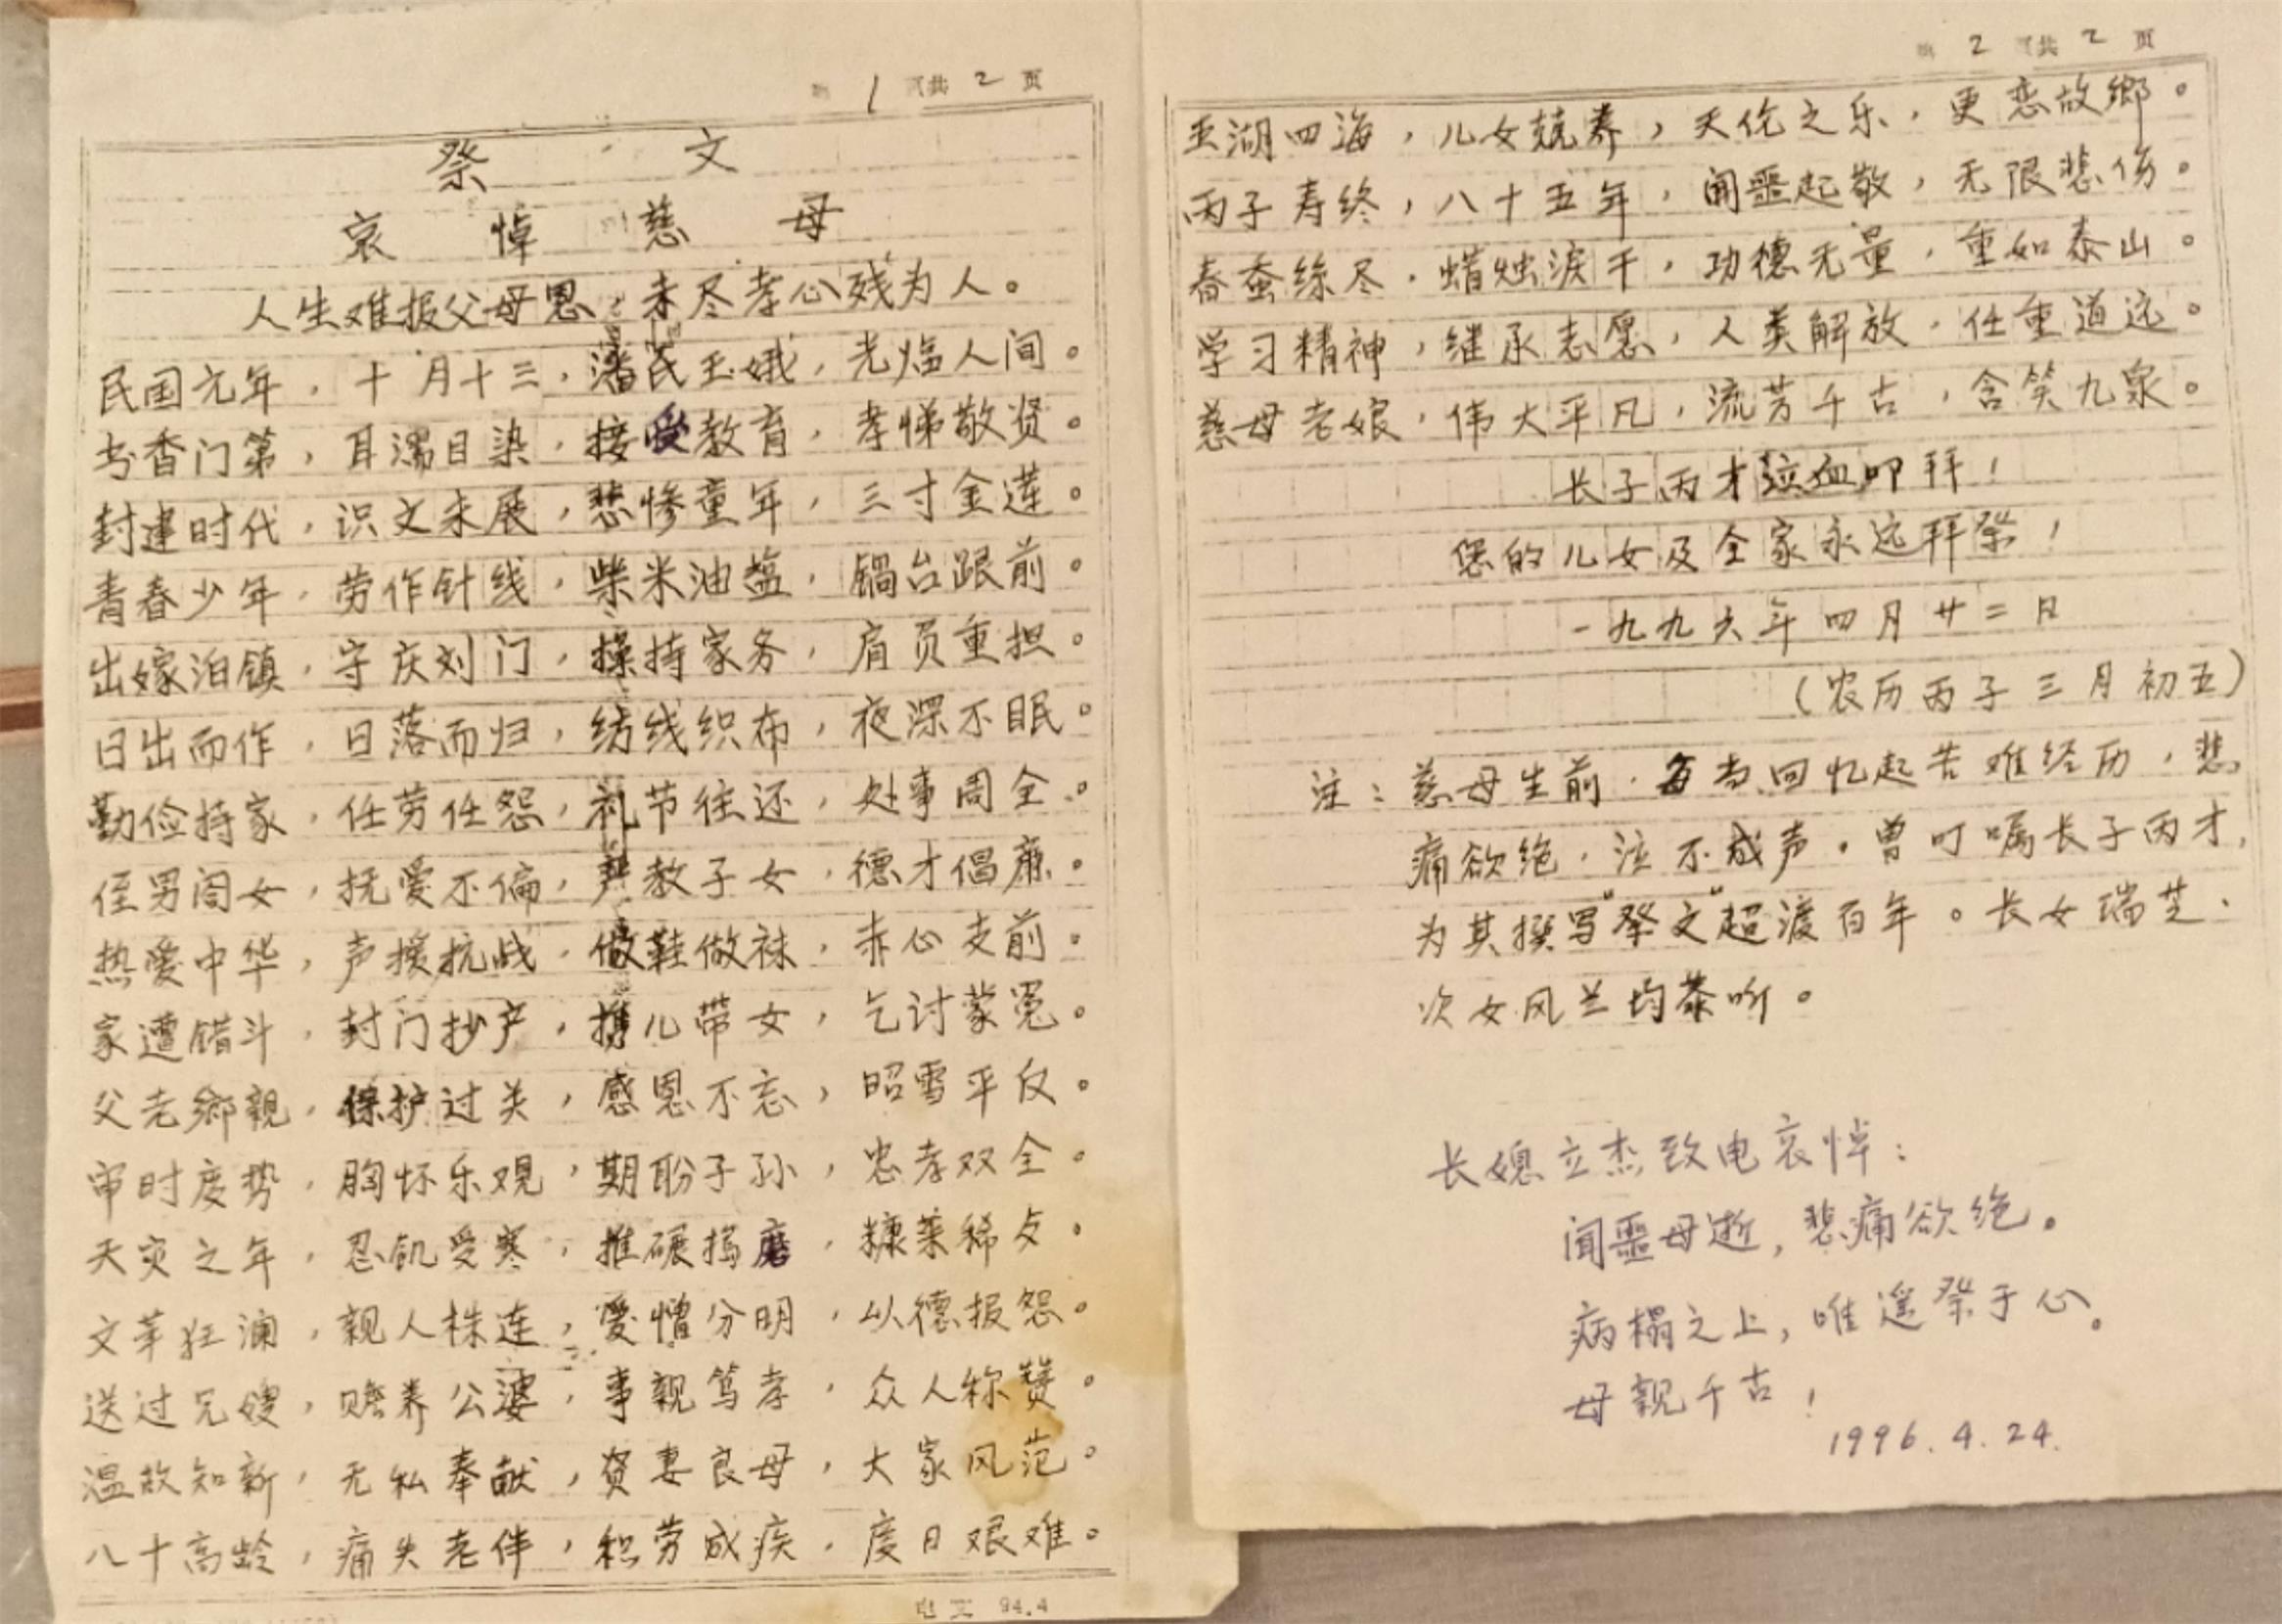 第 1 页共 2 页
祭 文
哀 悼 慈 母
人生难报父母恩，未尽孝心残为人。
民国元年，十月十三，潘氏玉娥，光临人间。
书香门第，耳濡目染，接受教育，孝悌敬贤。
封建时代，识文未展，悲惨童年，三寸金莲。
青春少年，劳作针线，柴米油盐，锅台跟前。
出嫁泊镇，守庆刘门，操持家务，肩负重担。
日出而作，日落而归，纺线织布，夜深不眠。
勤俭持家，任劳任怨，礼节往还，处事周全。
侄男闺女，抚爱不偏，严教子女，德才倡廉。
热爱中华，声援抗战，做鞋做袜，赤心支前。
家遭错斗，封门抄产，携儿带女，乞讨蒙冤。
父老鄉親，保护过关，感恩不忘，昭雪平反。
审时度势，胸怀乐观，期盼子孙，忠孝双全。
天灾之年，忍饥受寒，推碾捣磨，糠菜稀歺。
文革狂澜，親人株连，爱憎分明，以德报怨。
送过兄嫂，赡养公婆，事親笃孝，众人称赞。
温故知新，无私奉献，贤妻良母，大家风范。
八十高龄，痛失老伴，积劳成疾，度日艰难。
第 2 页共 2 页
五湖四海，儿女兢养，天伦之乐，更恋故鄉。
丙子寿终，八十五年，闻噩起敬，无限悲伤。
春蚕丝尽，蜡烛淚干，功德无量，重如泰山。
学习精神，继承志愿，人类解放，任重道远。
慈母老娘，伟大平凡，流芳千古，含笑九泉。
长子丙才泣血叩拜！
您的儿女及全家永远拜祭！
一九九六年四月廿二日
（农历丙子三月初五）
注：慈母生前，每当回忆起苦难经历，悲
痛欲绝，泣不成声。曾叮嘱长子丙才，
为其撰写“祭文”超渡百年。长女瑞芝、
次女风兰均恭听。
长媳立杰致电哀悼：
闻噩母逝，悲痛欲绝。
病榻之上，唯遥祭于心。
母親千古！
1996.4.24.
94.4